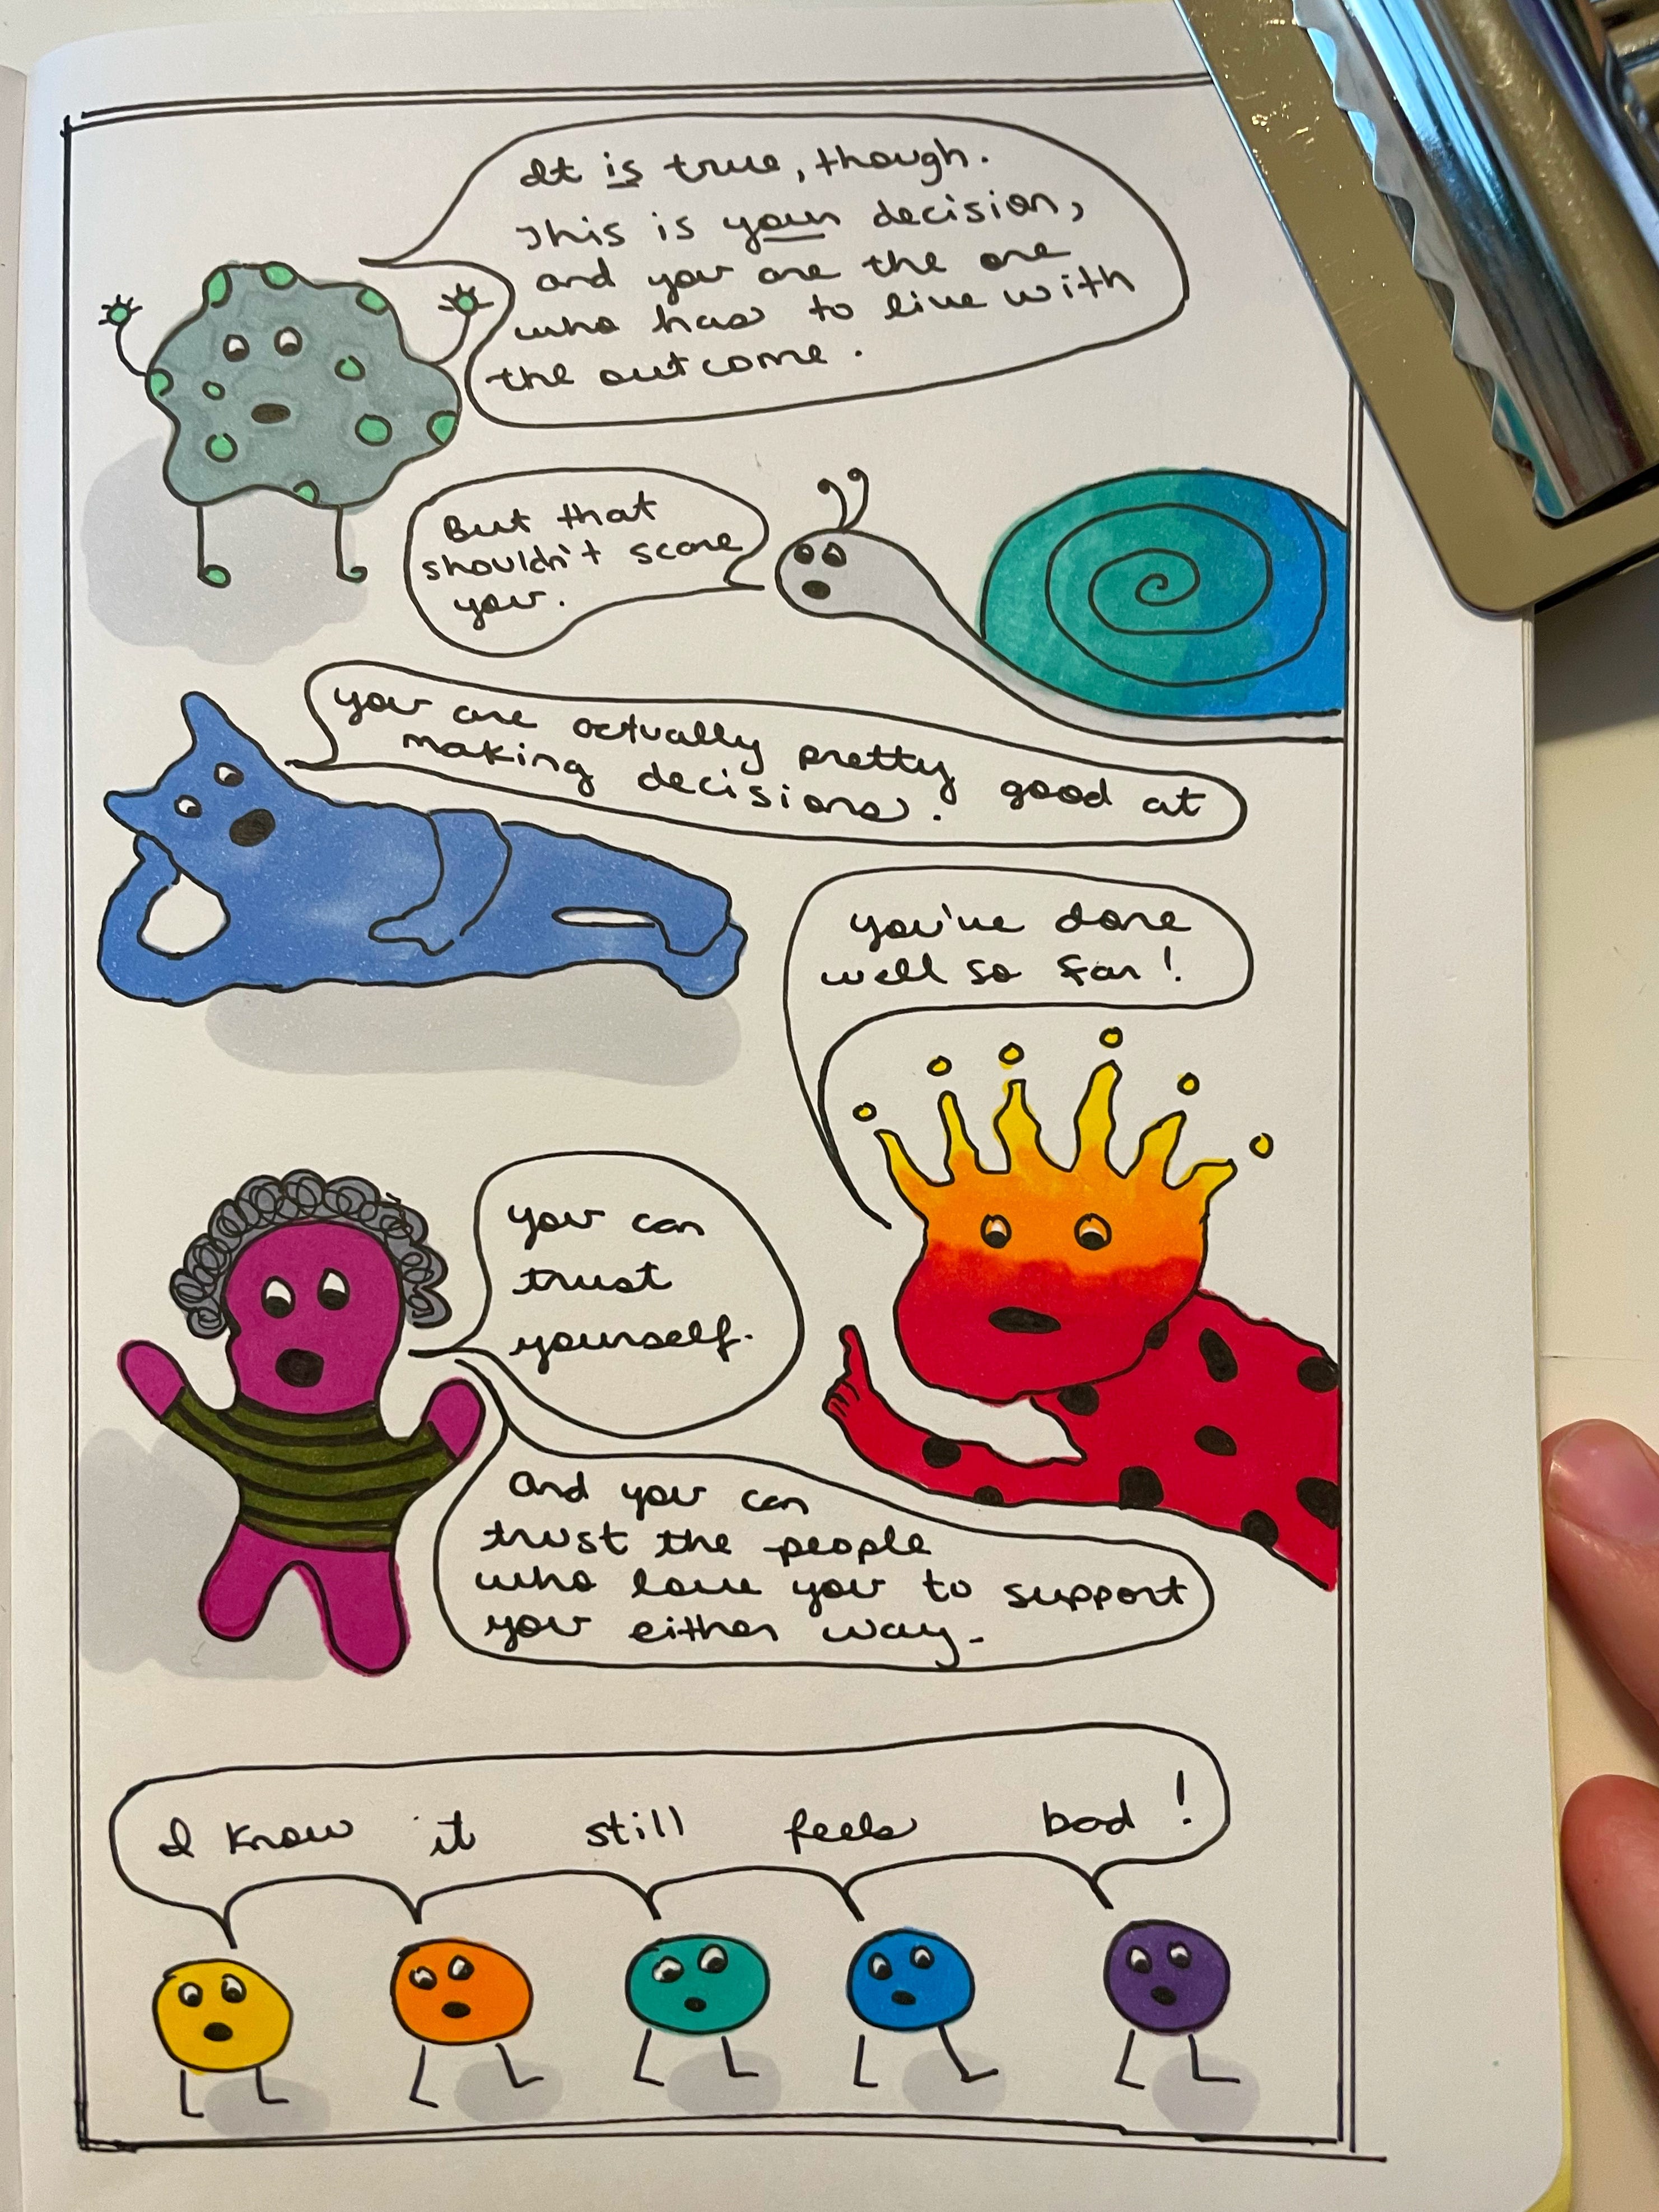 It is true, though.
This is your decision,
and you are the one
who has to live with
the outcome.
But that
shouldn't scare
you.
you are actually pretty good at
making decisions.
you've done
well so far!
you can
trust
yourself.
and you can
trust the people
who love you to support
you either way.
I know it still feels bad!